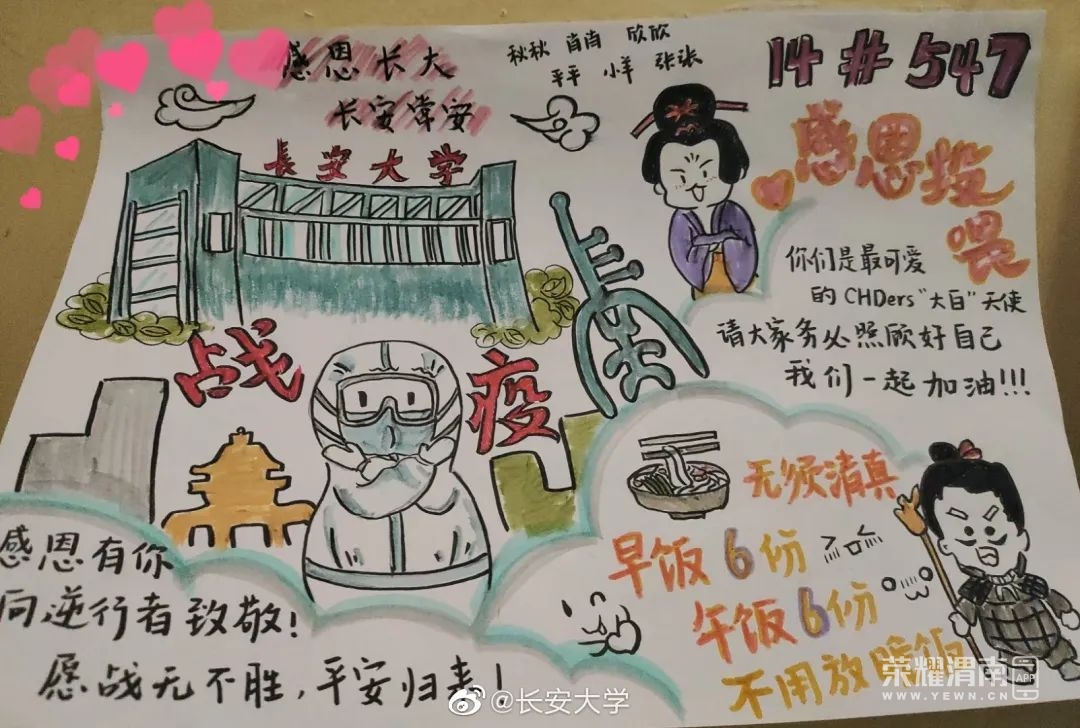 感恩长大
长安常安
秋秋 肖肖 欣欣
平平 小羊 张张
14#547
長安大学
感恩投
喂
你们是最可爱
的CHDers"大白"天使
请大家务必照顾好自己
我们一起加油!!!
战疫
无须清真
早饭6份
午饭6份
不用放晚饭
感恩有你
向逆行者致敬!
愿战无不胜,平安归来!
@长安大学
荣耀渭南
WWW.YEWN.CN
APP